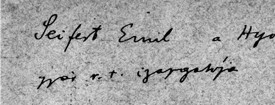 Seifert Emil a Hyd
gyár r. t. igazgatója